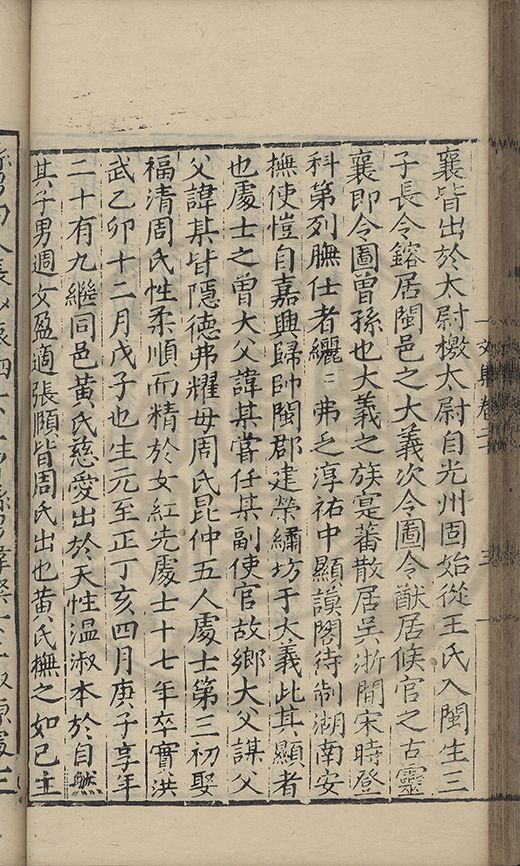 襄皆出於太尉檄太尉自光州固始從王氏入閩生三
子長令鎔居閩邑之大義次令圖令猷居候官之古靈
襄即令圖曾孫也大義之族寔蕃散居吴浙間宋時登
科第列膴仕者纚〻弗乏淳祐中顯謨閣待制湖南安
撫使愷自嘉興歸帥閩郡建榮繡坊于大義此其顯者
也處士之曾大父諱某嘗任某副使官故鄉大父諱父
父諱某皆隱德弗耀母周氏昆仲五人處士第三初娶
福清周氏性柔順而精於女紅先處士十七年卒實洪
武乙卯十二月戊子也生元至正丁亥四月庚子享年
二十有九繼同邑黄氏慈愛出於天性温淑本於自然
其子男週文盈適張頤皆周氏出也黄氏撫之如已生
文集卷二
三